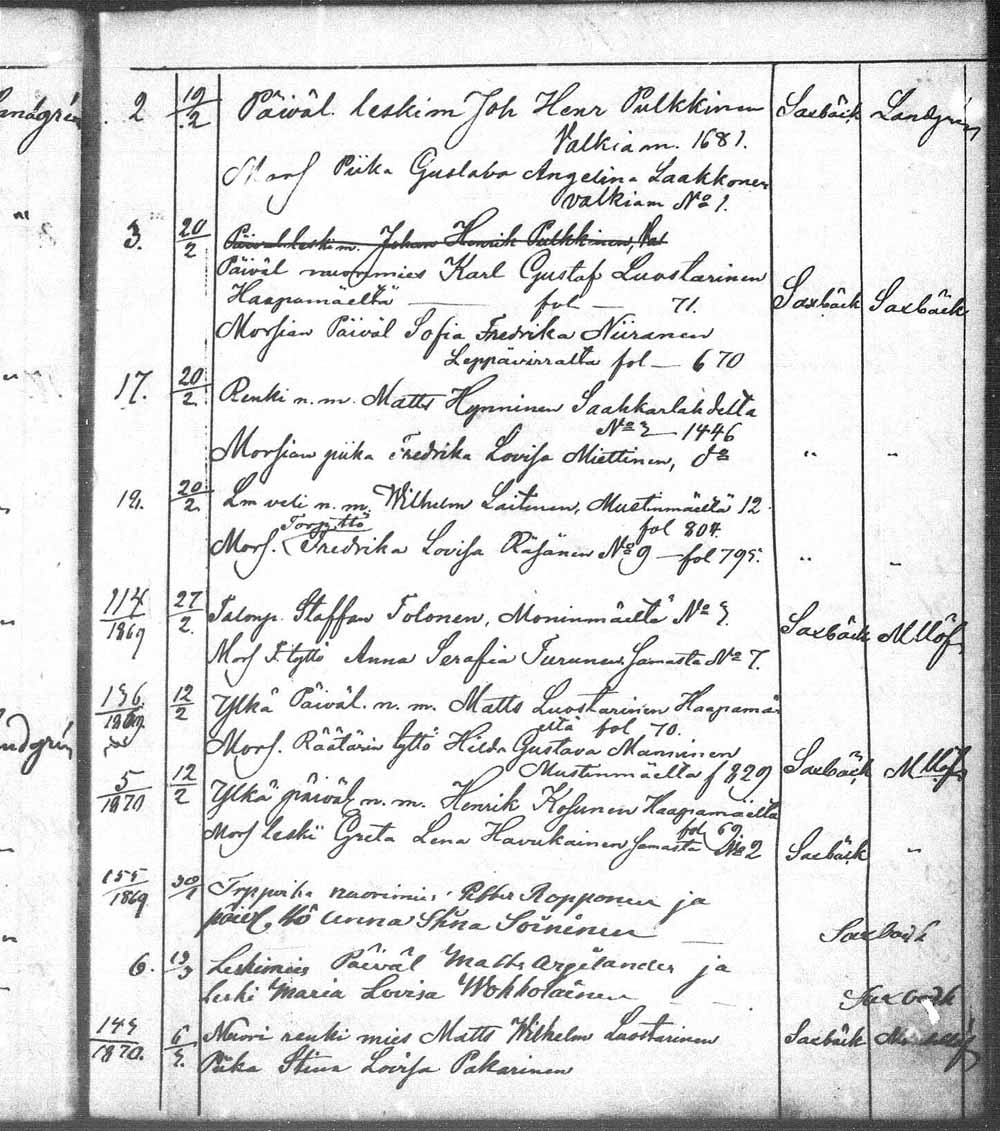 2 19/2 Päiväl. leskim Joh Henr Pulkkinen Saxbäck Landgrén
Valkiam. 1681.
Mors Piika Gustava Angelina Laakkonen
Valkiam No 1.
3. 20/2 Päiväl leskim. Johan Henrik Pulkkinen, Val
Päiväl nuorimies Karl Gustaf Luostarinen
Haapamäeltä — fol — 71. Saxbäck Saxbäck
Morsian Päiväl Sofia Fredrika Niiranen
Leppävirralta fol — 670
17. 20/2 Renki n. m. Matts Hynninen Saahkarlahdelta
No 2 — 1446
Morsian piika Fredrika Lovisa Miettinen, " "
20/2 Lm veli n. m. Wilhelm Laitinen, Mustinmäeltä 12
Torp. ttö fol 804.
Mors. Fredrika Lovisa Räsänen No 9 — fol 795. " "
114/1869 27/2. Talonp. Staffan Tolonen, Moninmäeltä No Saxbäck
Mors T. tyttö Anna Serafia Turunen Samasta No 7.
12/2 Ylkä Päiväl. n. m. Matts Luostarinen Haapamä-
eltä fol 70.
Mors. Räätärin tyttö Hilda Gustava Manninen
Mustinmäeltä f 829 Saxbäck
5/1870 12/2 Ylkä päiväl n. m. Henrik Kosunen Haapamäeltä
fol 69.
Mors leski Greta Lena Havukainen Samasta No 2 Saxbäck "
155/1869 nuorimies Petter Ropponen ja
päiväl ttö Anna Stina Soininen — Saxbäck
6. Leskimies Päiväl Matts Argilander ja
leski Maria Lovisa Wokkolainen — Saxbäck
1870. Nuori renki mies Matts Wilhelm Luostarinen Saxbäck
Piika Stina Lovisa Pakarinen